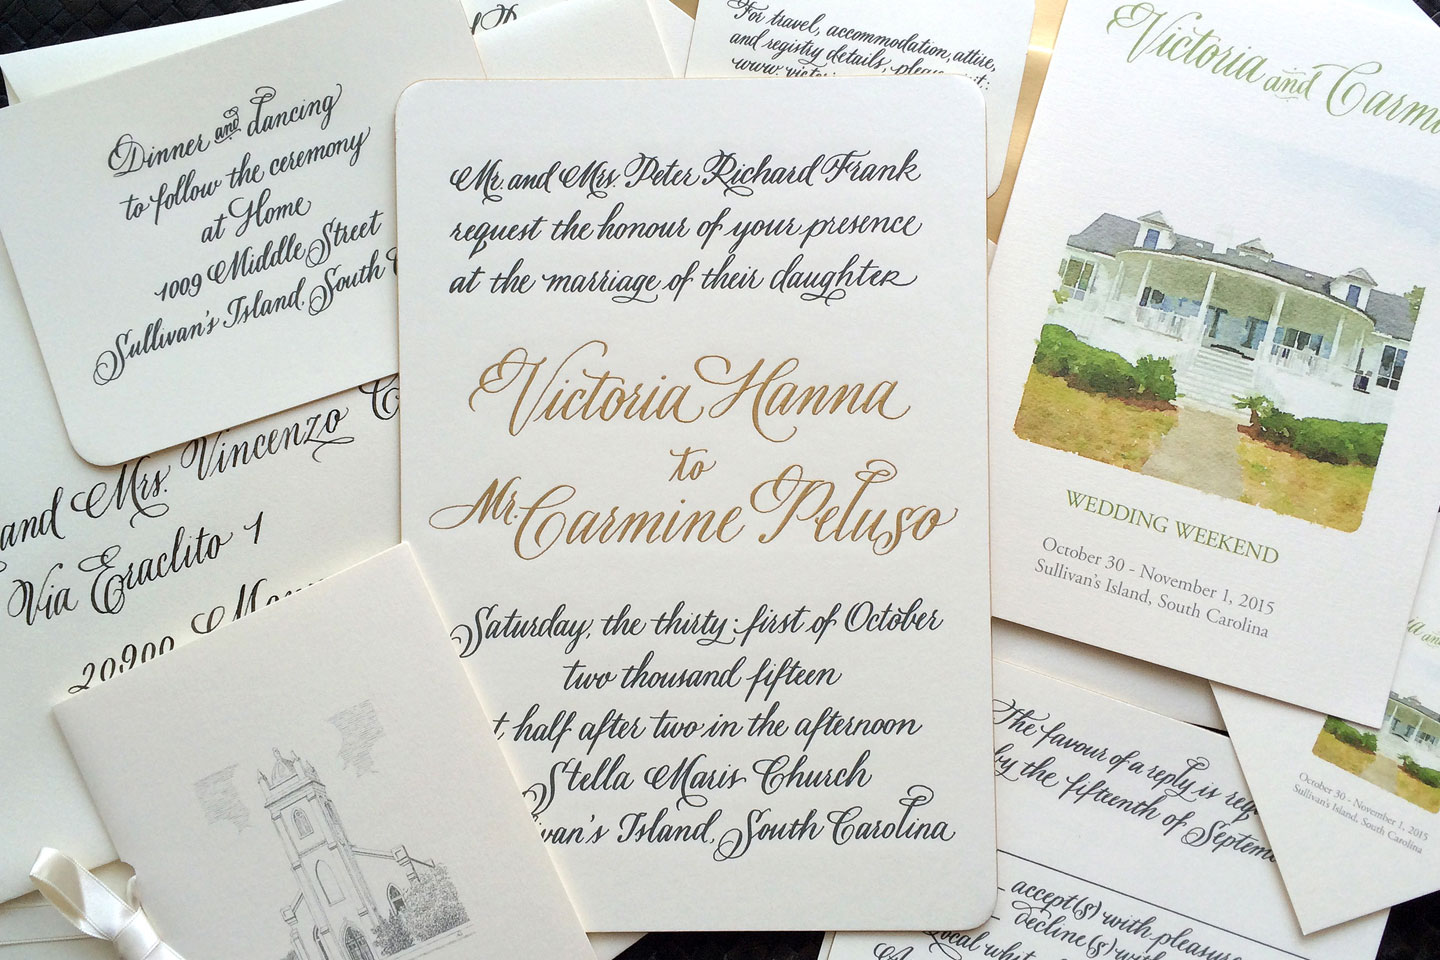 Dinner and dancing
to follow the ceremony
at Home
1009 Middle Street
Sullivan's Island, South
and Mrs. Vincenzo
Via Eraclito 1
20900
For travel, accommodation, attire,
and registry details, please
www.
Mr. and Mrs. Peter Richard Frank
request the honour of your presence
at the marriage of their daughter
Victoria Hanna
to
Mr. Carmine Peluso
Saturday, the thirty-first of October
two thousand fifteen
half after two in the afternoon
Stella Maris Church
Island, South Carolina
Victoria and
WEDDING WEEKEND
October 30 - November 1, 2015
Sullivan's Island, South Carolina
The favour of a reply is
by the fifteenth of
accept(s) with pleasure
decline(s) with
and
October 30 - November 1, 2015
Sullivan's Island, South Carolina